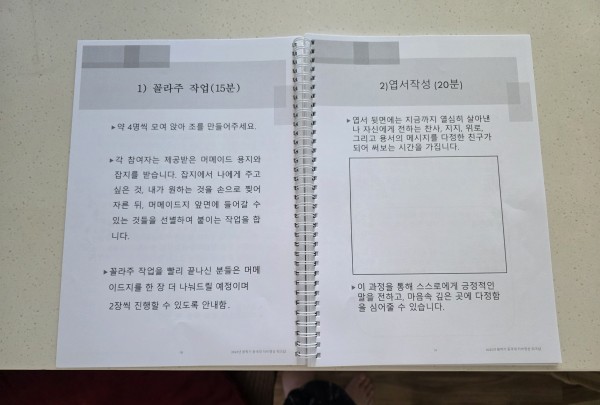 1) 꼴라주 작업(15분)
▸약 4명씩 모여 앉아 조를 만들어주세요.
▸각 참여자는 제공받은 머메이드 용지와
잡지를 받습니다. 잡지에서 나에게 주고
싶은 것, 내가 원하는 것을 손으로 찢어
자른 뒤, 머메이드지 앞면에 들어갈 수
있는 것들을 선별하여 붙이는 작업을 합
니다.
▸꼴라주 작업을 빨리 끝나신 분들은 머메
이드지를 한 장 더 나눠드릴 예정이며
2장씩 진행할 수 있도록 안내함.
2)엽서작성 (20분)
▸엽서 뒷면에는 지금까지 열심히 살아낸
나 자신에게 전하는 찬사, 지지, 위로,
그리고 용서의 메시지를 다정한 친구가
되어 써보는 시간을 가집니다.
▸이 과정을 통해 스스로에게 긍정적인
말을 전하고, 마음속 깊은 곳에 다정함
을 심어줄 수 있습니다.